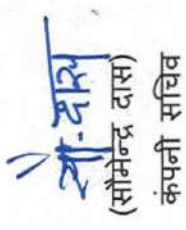 सौ.दास
(सौमेन्द्र दास)
कंपनी सचिव